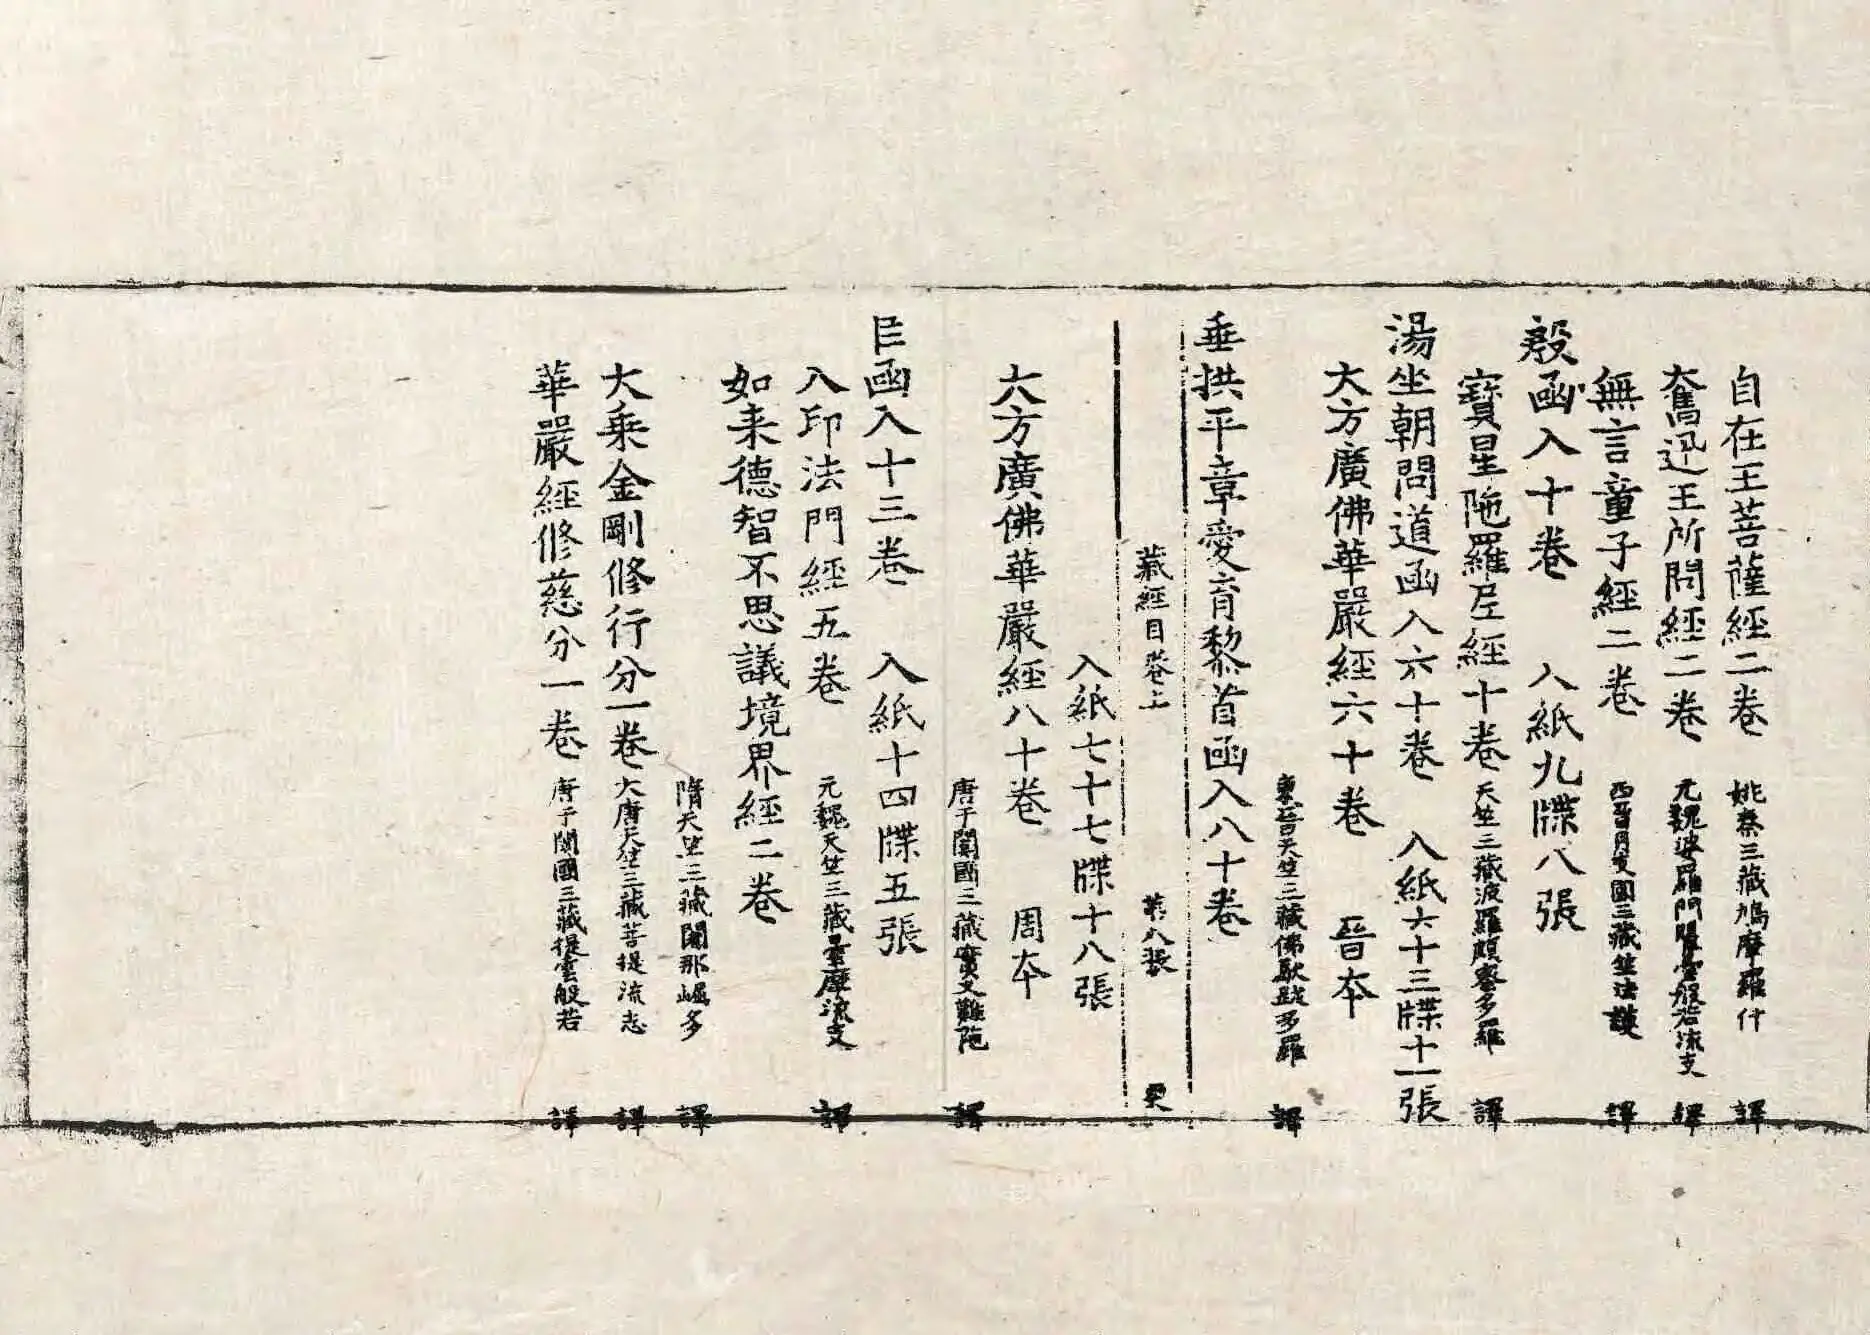 自在王菩薩經二卷 姚秦三藏鳩摩羅什 譯
奮迅王所問經二卷 元魏婆羅門瞿曇般若流支 譯
無言童子經二卷 西晉月支國三藏竺法護 譯
殷函入十卷 入紙九牒八張
寶星陁羅尼經十卷 天竺三藏波羅頗蜜多羅 譯
湯坐朝問道函入六十卷 入紙六十三牒十一張
大方廣佛華嚴經六十卷 晉本
東晉天竺三藏佛馱跋多羅 譯
垂拱平章愛育黎首函入八十卷
藏經目卷上 第八張 更
入紙七十七牒十八張
大方廣佛華嚴經八十卷 周本
唐于闐國三藏實叉難陁 譯
臣函入十三卷 入紙十四牒五張
入印法門經五卷 元魏天竺三藏曇摩流支 譯
如来德智不思議境界經二卷
隋天竺三藏闍那崛多 譯
大乘金剛修行分一卷 大唐天竺三藏菩提流志 譯
華嚴經修慈分一卷 唐于闐國三藏提雲般若 譯